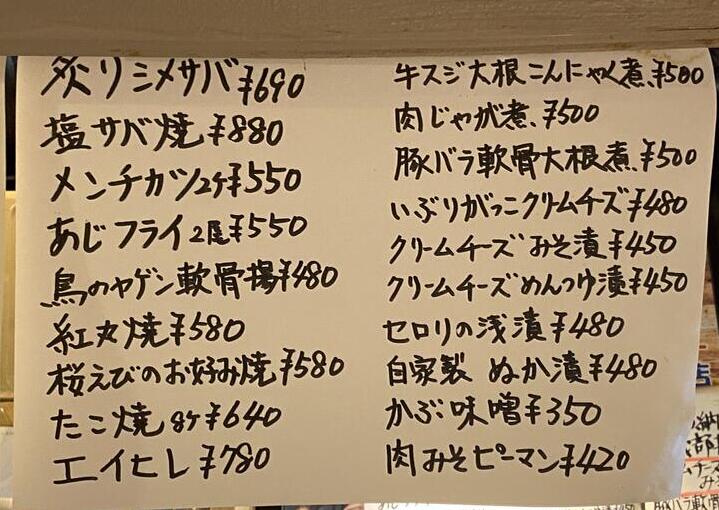 炙りシメサバ ¥690
塩サバ焼 ¥880
メンチカツ2ケ ¥550
あじフライ2尾 ¥550
鳥のヤゲン軟骨揚 ¥480
紅丸焼 ¥580
桜えびのお好み焼 ¥580
たこ焼8ケ ¥640
エイヒレ ¥780
牛スジ大根こんにゃく煮 ¥500
肉じゃが煮 ¥500
豚バラ軟骨大根煮 ¥500
いぶりがっこクリームチーズ ¥480
クリームチーズみそ漬 ¥450
クリームチーズめんつゆ漬 ¥450
セロリの浅漬 ¥480
自家製 ぬか漬 ¥480
かぶ味噌 ¥350
肉みそピーマン ¥420
店
豚バラ軟骨